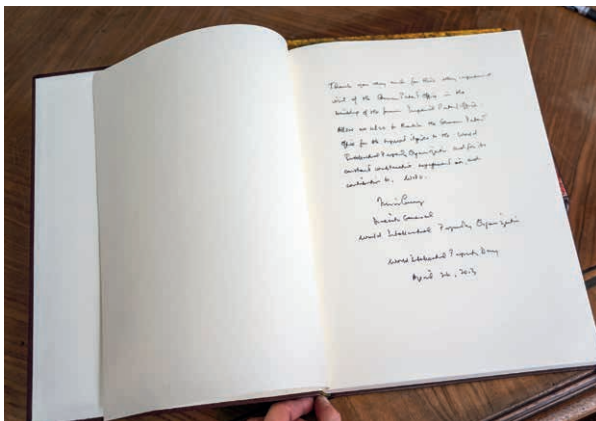 Thank you very much for this very impressive
visit of the German Patent Office in the
building of the former Imperial Patent Office.
Allow me also to thank the German Patent
Office for its support to the World
Intellectual Property Organization and for its
constant constructive engagement in, and
contribution to, WIPO.
Francis Gurry
Director General
World Intellectual Property Organization
World Intellectual Property Day
April 26, 2013